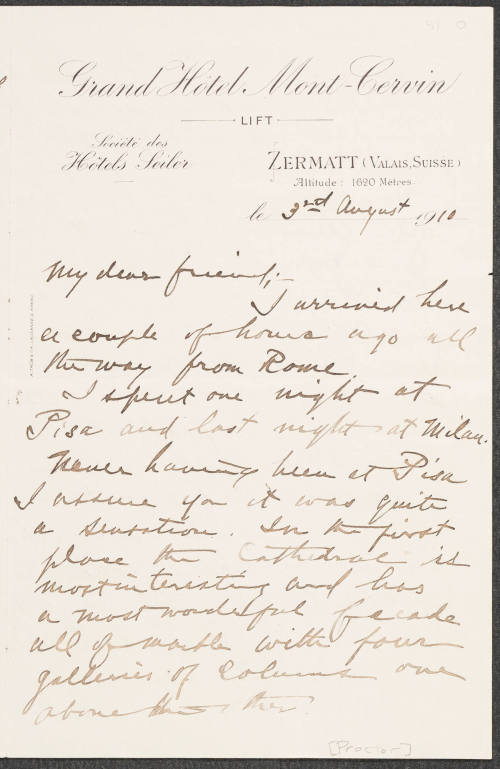 Grand Hôtel Mont-Cervin
LIFT
Société des
Hôtels Seiler
ZERMATT (VALAIS, SUISSE)
Altitude : 1620 Mètres
le 3rd August 1910
My dear friend;-
I arrived here
a couple of hours ago all
the way from Rome.
I spent one night at
Pisa and last night at Milan.
Never having been at Pisa
I assure you it was quite
a sensation. In the first
place the Cathedral is
most interesting and has
a most wonderful facade
all of marble with four
galleries of columns one
above the other.
[Proctor]